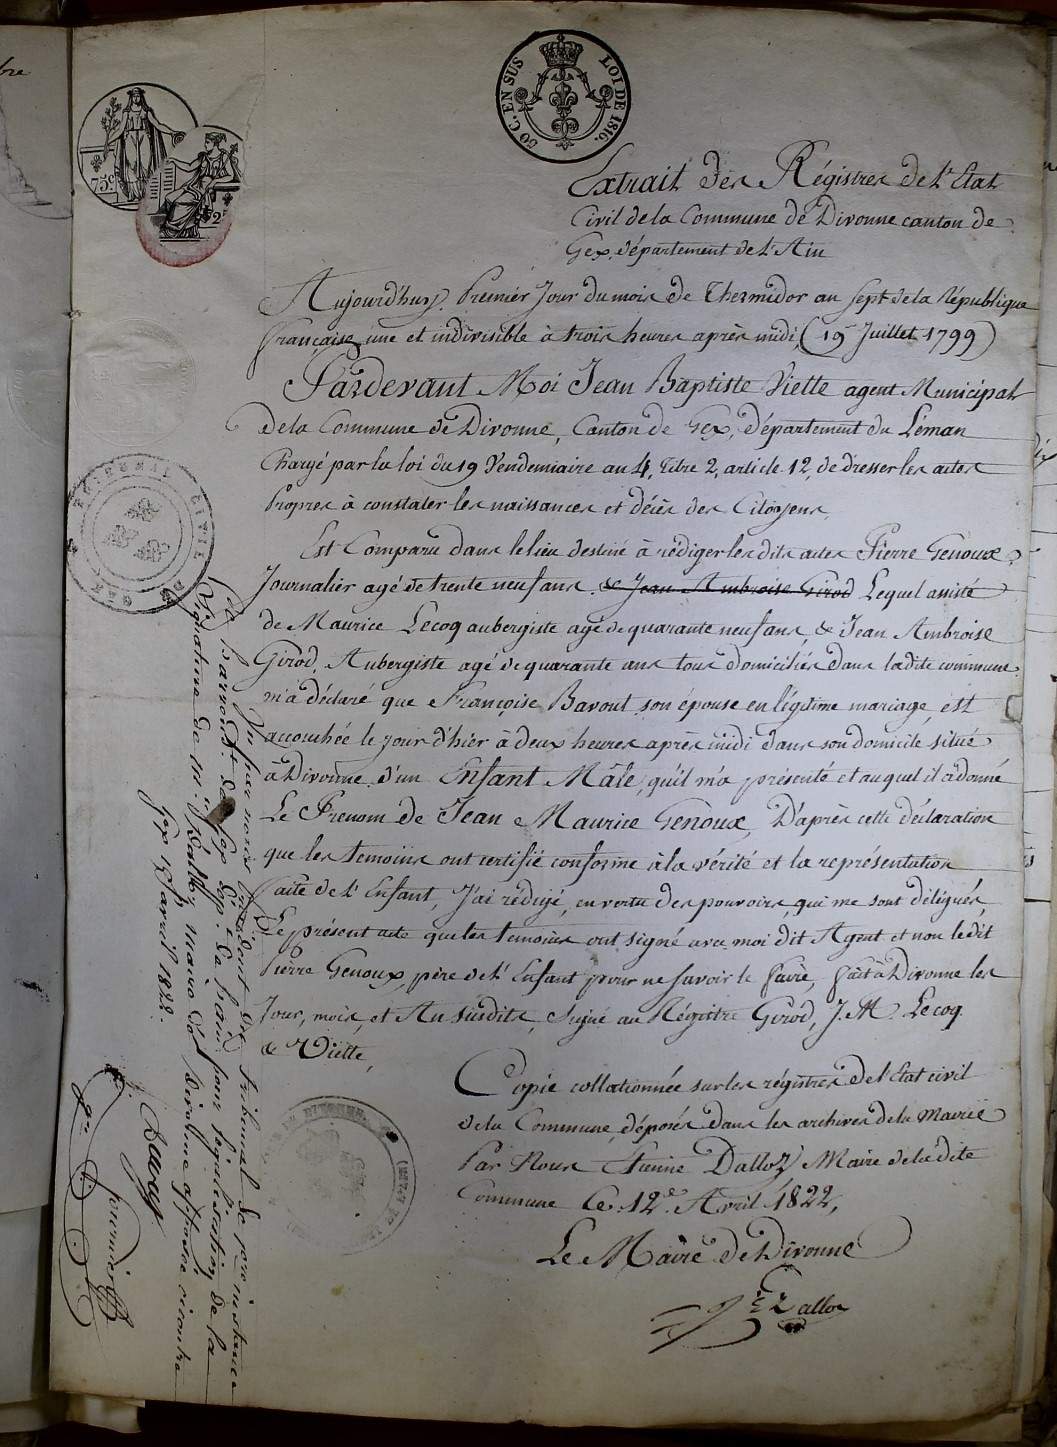 50 C. EN SUS LOI DE 1816.
75 c
2
Extrait des Régistres de l'Etat
Civil de la Commune de Divonne canton de
Gex, département de l'Ain
Aujourd'huy Premier Jour du mois de Thermidor an sept de la République
française une et indivisible à trois heures après midi, (19 Juillet 1799)
Pardevant Moi Jean Baptiste Viette agent Municipal
de la Commune de Divonne, Canton de Gex, département du Leman
Chargé par la loi du 19 Vendemiaire an 4, titre 2, article 12, de dresser les actes
Propres à constater les naissances et décès des Citoyens,
Est Comparu dans le lieu destiné à rédiger les dits actes Pierre Genoux
Journalier agé de trente neuf ans, & Jean Ambroise Girod Lequel assisté
de Maurice Lecoq aubergiste agé de quarante neuf ans, & Jean Ambroise
Girod, Aubergiste agé de quarante ans tous domiciliés dans ladite commune
m'a déclaré que Françoise Bavout son épouse en légitime mariage, est
accouchée le jour d'hier à deux heures après midi dans son domicile situé
à Divonne d'un Enfant Mâle, qu'il m'a présenté et auquel il a donné
Le Prenom de Jean Maurice Genoux, D'après cette déclaration
que les temoins ont certifié conforme à la vérité et la représentation
faite de l'Enfant, J'ai rédigé, en vertu des pouvoirs, qui me sont délégués,
Le présent acte que les temoins ont signé avec moi dit Agent et non ledit
Pierre Genoux, père de l'Enfant pour ne savoir le faire, fait à Divonne les
Jour, mois, et An susdits, Signé au Régistre Girod, J. M. Lecoq
& Viette,
Copie collationnée sur les régistres de l'Etat civil
de la Commune, déposés dans les archives de la Mairie
Par Nous Dalloz Maire de la dite
Commune Ce 12 Avril 1822,
Le Maire de Divonne
Dalloz
TRIBUNAL CIVIL D GEX
Vu par nous Président du tribunal de 1ère instance
de l'arrond.t de Gex dép.t de l'ain pour légalisation de la
signature de M. Dalloz maire de Divonne apposée ci contre
Gex avril 1822.